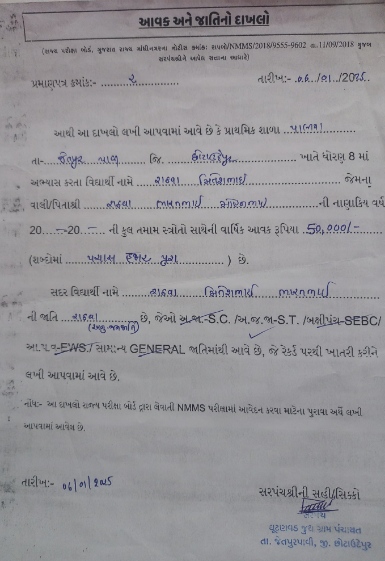 આવક અને જાતિનો દાખલો
(રાજ્ય પરીક્ષા બોર્ડ, ગુજરાત રાજ્ય ગાંધીનગરના નોટીસ ક્રમાંક: રાપબો/NMMS/2018/9555-9602 તા.11/09/2018 મુજબ
સરપંચશ્રીને આપેલ સત્તાના આધારે)
પ્રમાણપત્ર ક્રમાંક:- ૨ તારીખ:- ૦૬/૦૧/૨૦૨૫
આથી આ દાખલો લખી આપવામાં આવે છે કે પ્રાથમિક શાળા
તા- જેતપુર પાવી જિ. છોટાઉદેપુર ખાતે ધોરણ 8 માં
અભ્યાસ કરતા વિદ્યાર્થી નામે રાઠવા જેમના
વાલી/પિતાશ્રી રાઠવા ની નાણાકિય વર્ષ
20 -20 ની કુલ તમામ સ્ત્રોતો સાથેની વાર્ષિક આવક રૂપિયા 50,000/-
(શબ્દોમાં પચાસ હજાર પુરા ) છે.
સદર વિદ્યાર્થી નામે રાઠવા
ની જાતિ રાઠવા છે, જેઓ અ.જા.-S.C. /અ.જ.જા-S.T. /બક્ષીપંચ-SEBC/
(અનુ.જનજાતિ)
આ.પ.વ-EWS / સામાન્ય GENERAL જાતિમાંથી આવે છે, જે રેકર્ડ પરથી ખાતરી કરીને
લખી આપવામાં આવે છે.
નોંધ:- આ દાખલો રાજ્ય પરીક્ષા બોર્ડ દ્વારા લેવાતી NMMS પરીક્ષામાં આવેદન કરવા માટેના પુરાવા અર્થે લખી
આપવામાં આવેલ છે.
તારીખ:- ૦૬/૦૧/૨૦૨૫
સરપંચશ્રીની સહી/સિક્કો
સરપંચ
જુથ ગ્રામ પંચાયત
તા. જેતપુરપાવી, જી. છોટાઉદેપુર